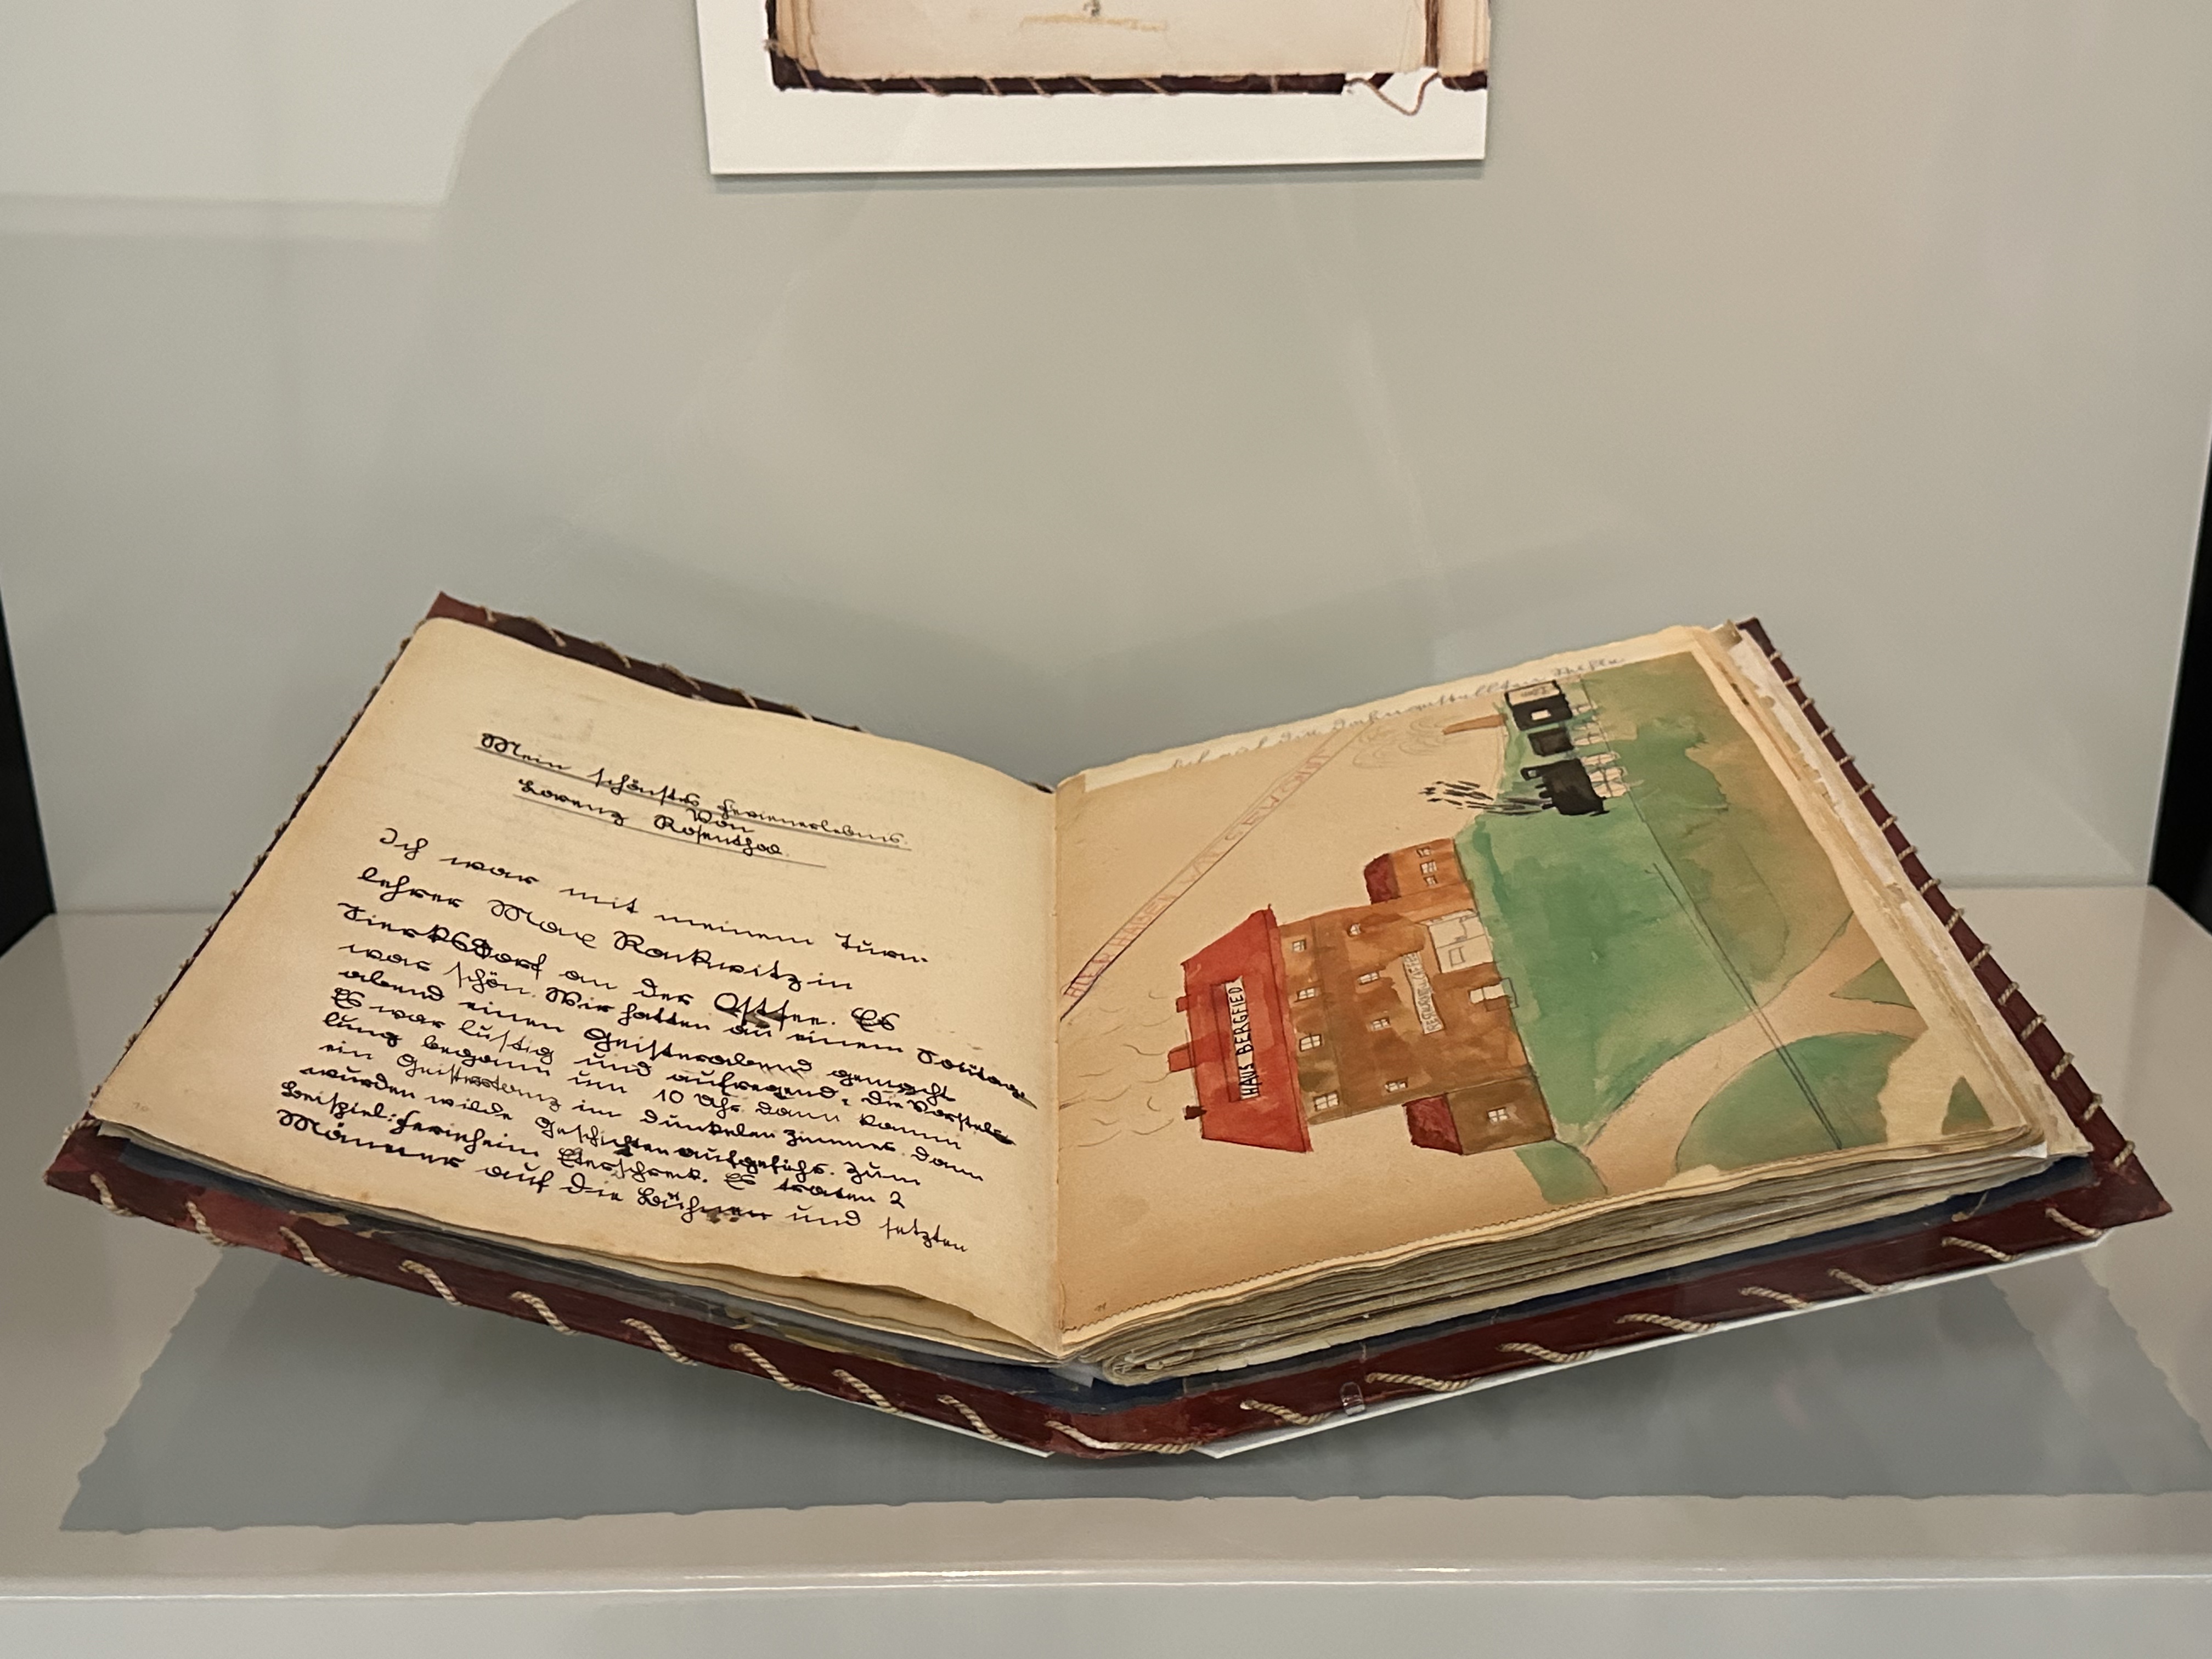 Mein schönstes Ferienerlebnis.
Von
Lorenz Rosenthal.
Ich war mit meinem Turn-
lehrer Max Rackwitz in
Tierksdorf an der Ostsee. Es
war schön. Wir hatten an einem
abend einen Geisterabend gemacht
Es war lustig und aufregend: die Vorstel-
lung begann um 10 Uhr dann kamm
ein Geistertanz im dunkelen Zimmer. Dann
wurden wilde Geschichten aufgeführt. Zum
Beispiel: Ferienheim Eterschreck. Es traten 2
Männer auf die Bühnen und setzten
HAUS BERGFIED